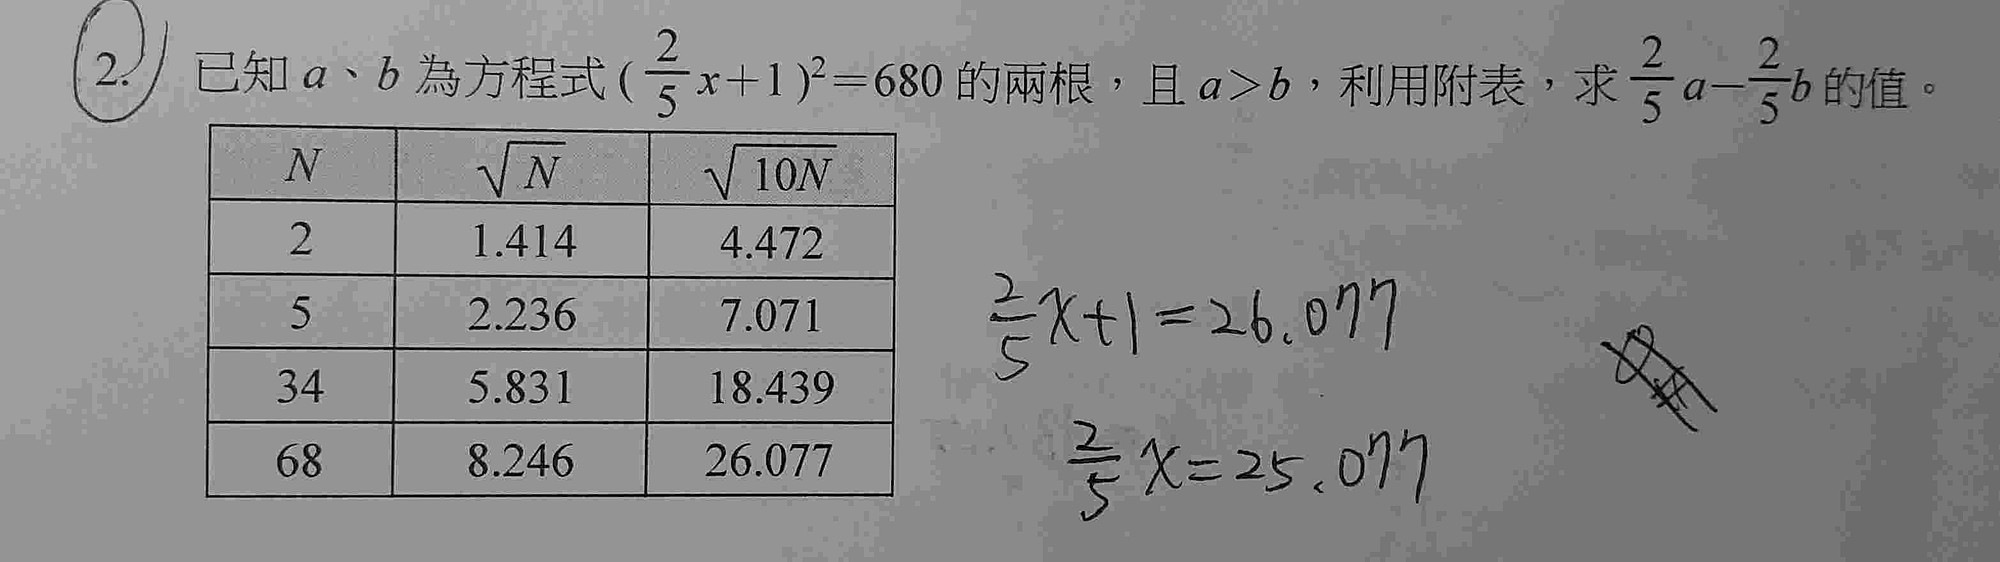 2. 已知 a、b 為方程式 (2/5 x+1)²=680 的兩根,且 a>b,利用附表,求 2/5 a−2/5 b 的值。
N √N √10N
2 1.414 4.472
5 2.236 7.071
34 5.831 18.439
68 8.246 26.077
2/5 x+1=26.077
2/5 x=25.077